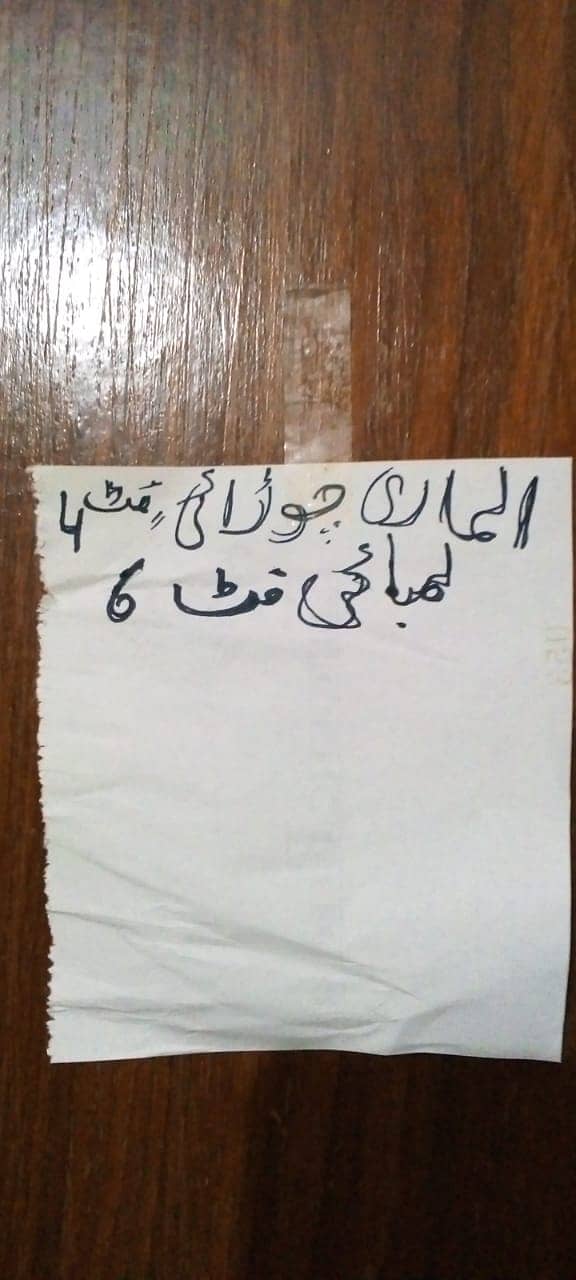 الماری چوڑائی فٹ 4
لمبائی فٹ 6